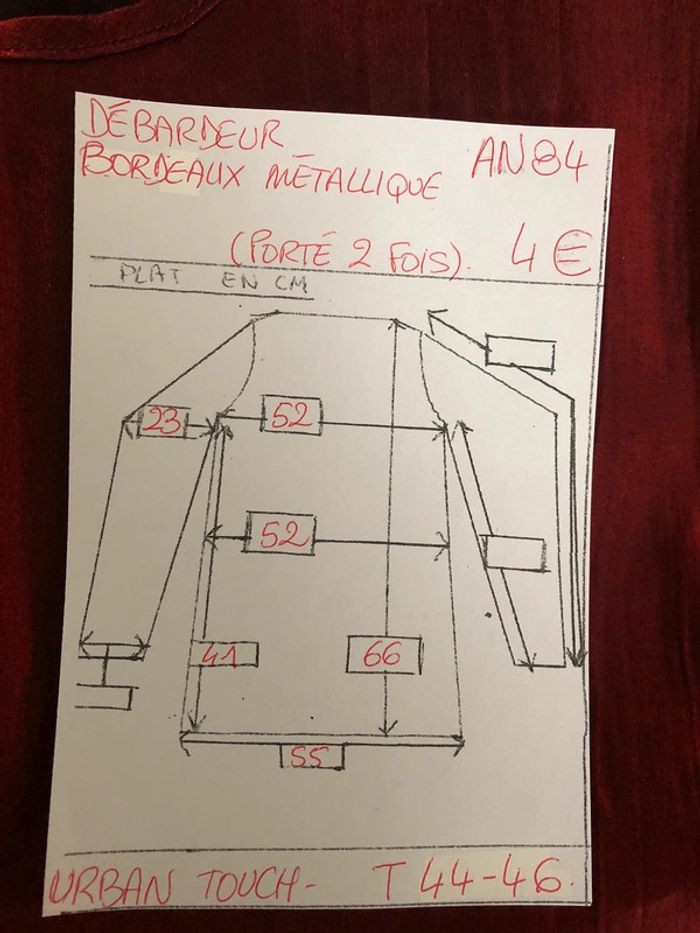 DÉBARDEUR
BORDEAUX MÉTALLIQUE AN84
(PORTÉ 2 FOIS). 4€
PLAT EN CM
23 52
52
41 66
55
URBAN TOUCH- T 44-46.